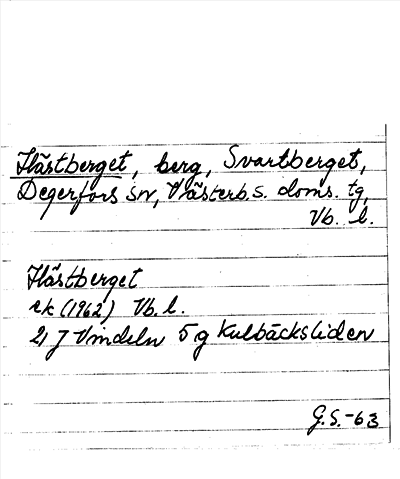 Hästberget, berg, Svartberget,
Degerfors sn, Västerb. s. doms. tg,
Vb. l.
Hästberget
ek (1962) Vb. l.
21 J Vindeln 5 g Kulbäcksliden
G.S. -63